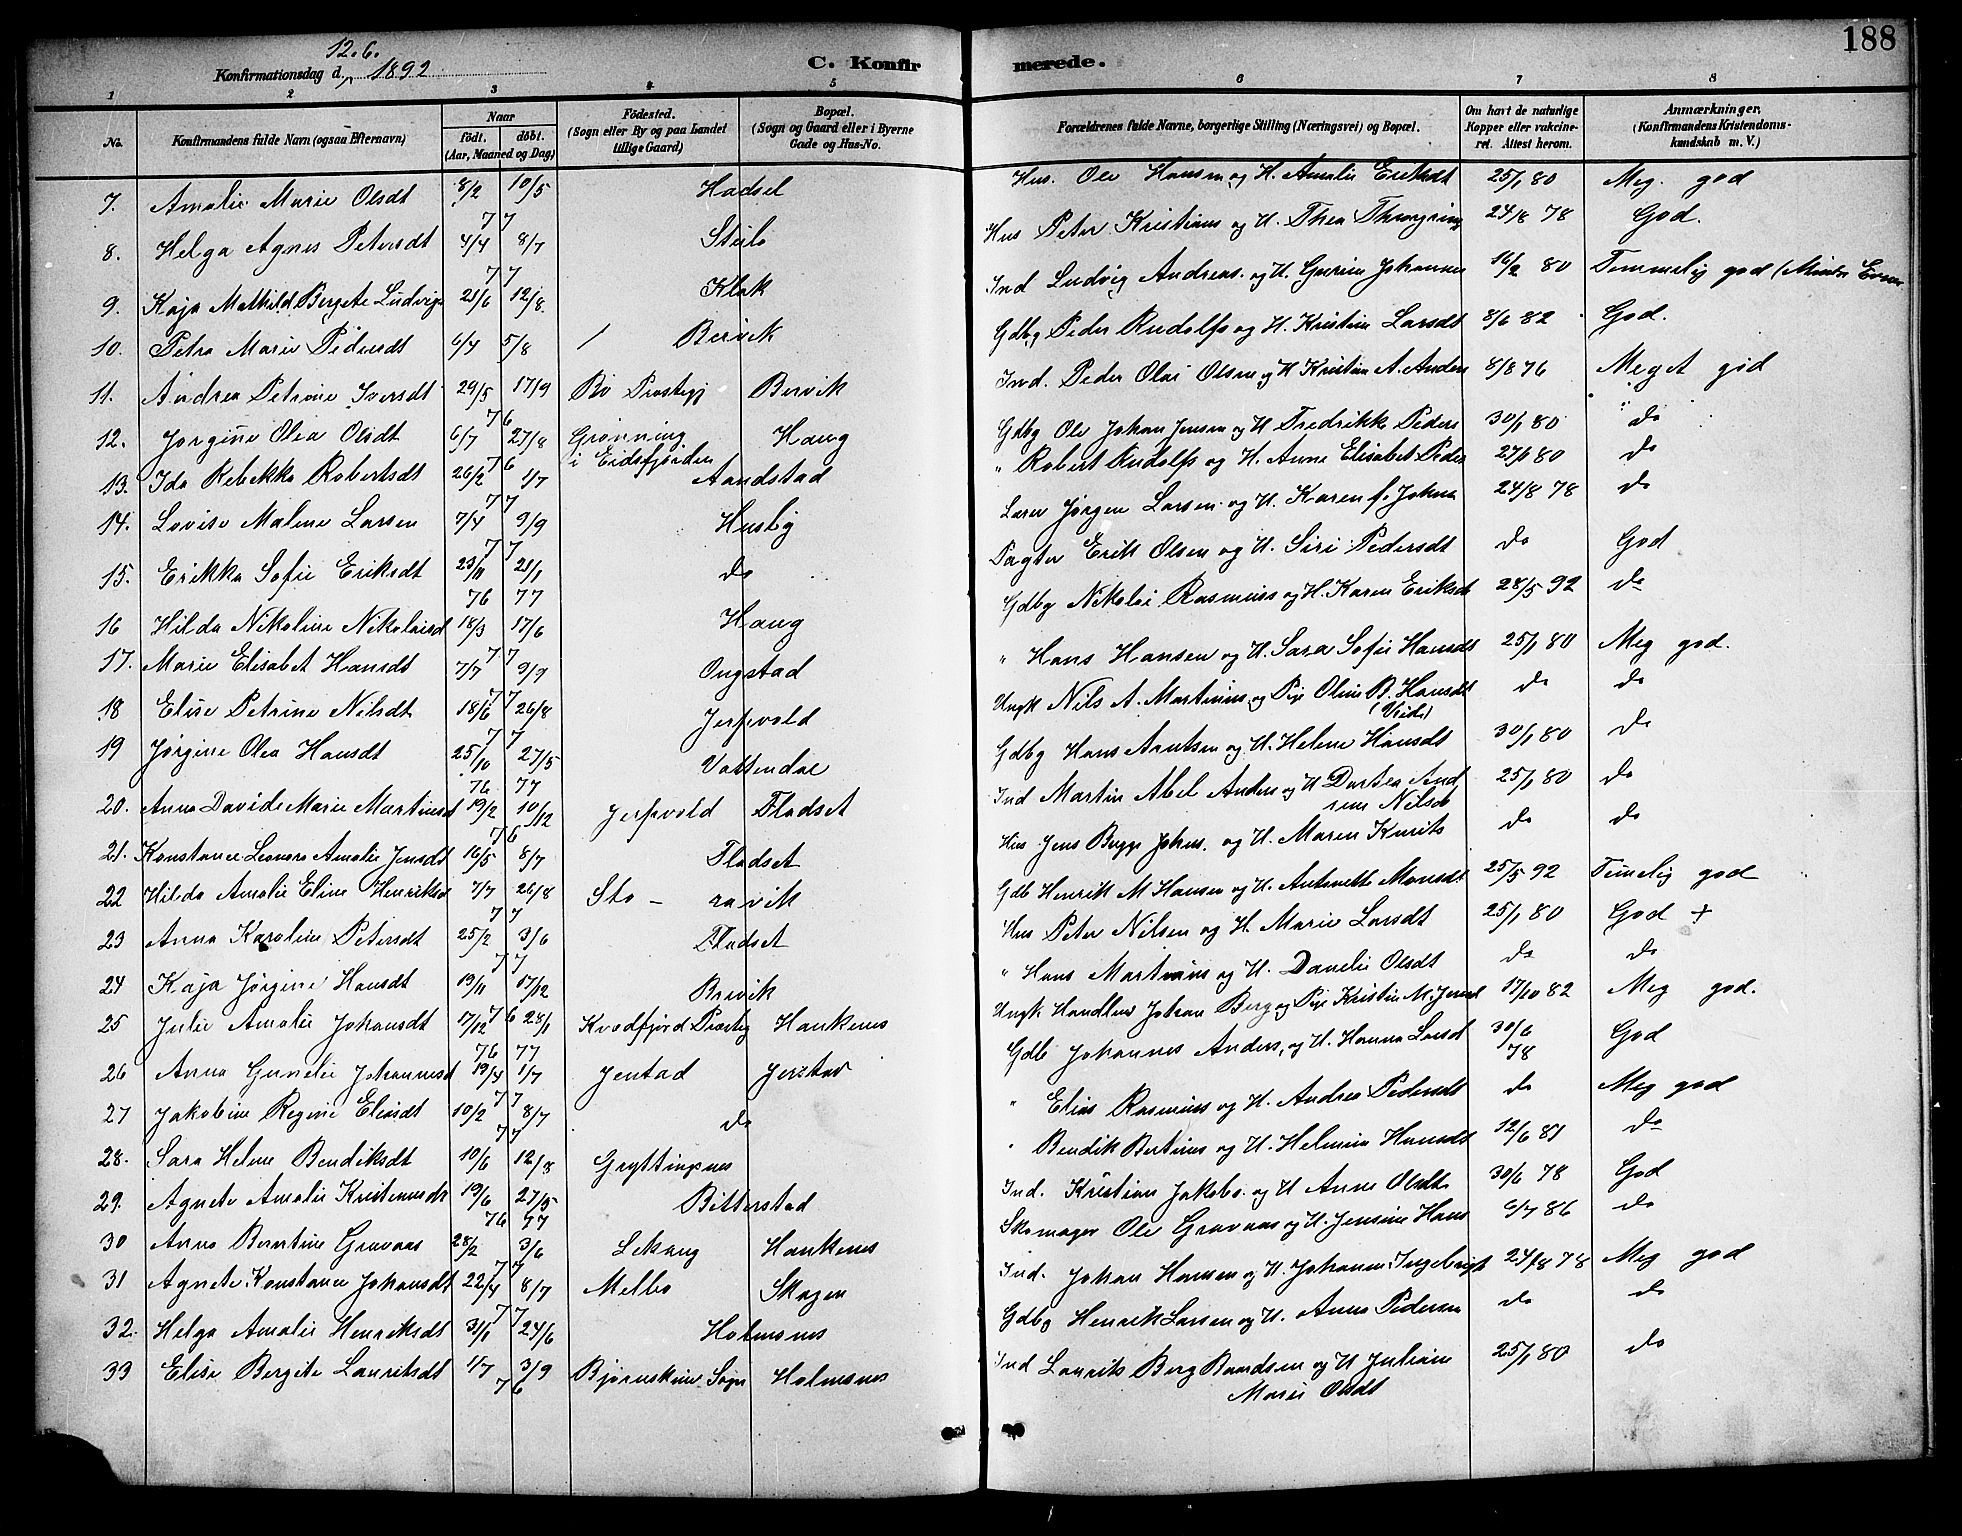 188
12.6.
Konfirmationsdag d. 1892
C. Konfirmerede.
1 2 3 4 5 6 7 8
No. Konfirmandens fulde Navn (ogsaa Efternavn) Naar födt. döbt. (Aar, Maaned og Dag) Födested. (Sogn eller By og paa Landet tillige Gaard) Bopæl. (Sogn og Gaard eller i Byerne Gade og Hus-No. Forældrenes fulde Navne, borgerlige Stilling (Næringsvei) og Bopæl. Om havt de naturlige Kopper eller vakcineret. Attest herom. Anmærkninger. (Konfirmandens Kristendomskundskab m. V.)
7. Amalie Marie Olsdt 8/2 10/5 77 Hadsel Hus. Ole Hansen og H. Amalie Eriksdt 25/1 80 Meg. god
8. Helga Agnes Petersdt 4/4 8/7 77 Steilo Hus Peter Kristians og H. Thea 24/8 78 God.
9. Kaja Mathild. Bergete Ludvigs 21/6 12/8 Klak Ind Ludvig Andreas. og H. Gurine Johannes 16/2 80 Temmelig god
10. Petra Marie Pedersdt 6/4 5/8 / Bervik Gdbg Peder Rudolfs og H. Kristine Larsdt 8/6 82 God.
11. Andrea Petrine Iversdt 29/5 17/9 76 Bö Prestegj Bervik Ind. Peder Olai Olsen og H Kristine A. Anders 8/8 76 Meget god
12. Jørgine Olea Olsdt 6/7 27/8 76 Grönning i Eidsfjorden Haug Gdbg Ole Johan Jensen og H Fredrikke Peders 30/1 80 do
13. Ida Rebekka Robertsdt 26/2 1/7 77 Aandstad " Robert Rudolfs og H. Anne Elisabet Peder 27/1 80 do
14. Lovise Malene Larsen 7/4 9/9 77 Husby Lærer Jørgen Larsen og H. Karen f. Johns 24/8 78 do
15. Erikka Sofie Eriksdt 23/11 21/1 76 77 do Pagter Erik Olsen og H. Siri Pedersdt do God
16 Hilda Nikoline Nikolaisd 18/3 17/6 77 Haug Gdbg Nikolai Rasmus og H. Karen Eriksdt 28/5 92 do
17. Marie Elisabet Hansdt 7/7 9/9 77 Ongstad " Hans Hansen og H. Sara Sofie Hansdt 25/1 80 Meg god.
18 Elise Petrine Nilsdt 18/6 26/8 77 Jerpvold Ungk Nils A. Martinius og Pige Oline B. Hansdt do do
19 Jørgine Olea Hansdt 25/10 27/5 76 77 Vottendal Gdbg Hans Arntsen og H. Helene Hansdt 30/1 80 do
20. Anna Davide Marie Martinsd 19/2 10/12 76 Jerpvold Fladset Ind Martin Abel Anders og H Dortea And Nilsdt 25/1 80 do
21. Konstance Leonora Amalie Jensdt 16/5 8/7 Fladset Hus Jens Bugge Johns. og H. Maren Knuts do do
22 Hilda Amalie Eline Henriksd 7/7 26/8 77 Sto - ravik Gdb Henrik M Hansen og H. Antonette Monsdt 25/5 92 Temelig god
23 Anna Karoline Petersdt 25/2 3/6 77 Fladset Hus Peter Nilsen og H. Marie Larsdt 25/1 80 God +
24 Kaja Jørgine Hansdt 19/11 17/12 76 Brevik " Hans Martinius og H. Danelie Olsdt do do
25 Julie Amalie Johansdt 17/12 28/1 76 77 Kvadfjord Prestg Haukenes Ungk Handlem Johan Berg og Pige Kristine M. Jensd 17/10 82 Meg god.
26 Anna Gunelie Johannesd 19/4 1/7 77 Jenstad Gdb Johannes Anders, og H. Hanna Larsd 30/6 78 God
27 Jakobine Regine Eliasdt 10/2 8/7 77 do " Elias Rasmus og H. Andrea Pedersdt do Meg god
28. Sara Helene Bendiksdt 10/6 12/8 Gryttingsnes " Bendik Bertinus og H. Helmine Hansdt 12/6 81 do
29. Agnete Amalie Kristensdt 19/6 27/5 76 77 Bitterstad Ind. Kristian Jakobs. og H Anne Olsdt 30/6 78 God
30 Anna Berntine Gravaas 28/2 3/6 77 Lekang Haukenes Skomager Ole Gravaas og H. Jensine Hans 6/7 86 do
31 Agnete Konstance Johansdt 22/4 8/7 77 Melbo Skagen Ind. Johan Hansen og H. Johanna Ingebrigt 24/8 78 Meg god
32. Helga Amalie Henriksdt 31/1 24/6 Holmsnes Gdbg Henrik Larsen og H. Anna Pedersen do do
33 Elise Bergete Lauritsdt 1/7 3/9 76 Björnskinn Sogn Holmsnes Ind Laurits Berg Baardsen og H Juliane Marie Olsdt 25/1 80 do